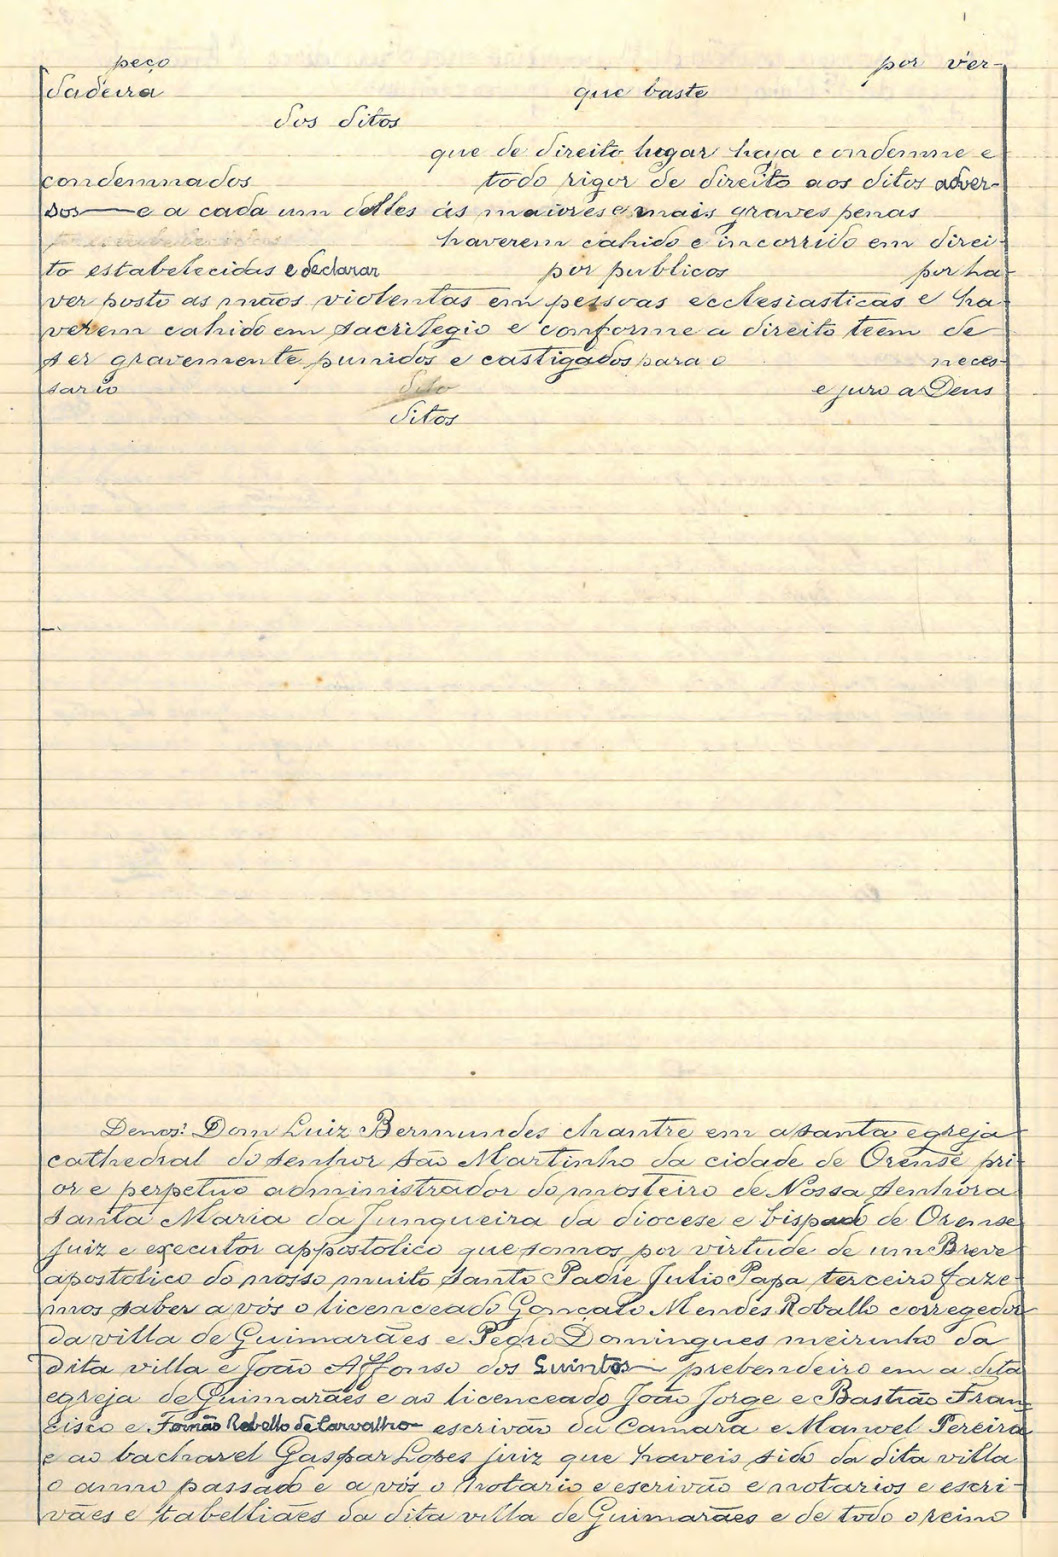 peço por ver-
dadeira que baste
dos ditos
que de direito logar haja condemne e
condemnados todo rigor de direito aos ditos adver-
sos — e a cada um delles ás maiores e mais graves penas
haverem cahido e incorrido em direi-
to estabelecidas e declarar por publicos por ha-
ver posto as mãos violentas em pessoas ecclesiasticas e ha-
verem cahido em sacrilegio e conforme a direito teem de
ser gravemente punidos e castigados para o neces-
sario dito e juro a Deus
ditos
Denos: Dom Luiz Bermundes chantre em a santa egreja
cathedral do senhor são Martinho da cidade de Orense pri-
or e perpetuo administrador do mosteiro de Nossa Senhora
Santa Maria da Junqueira da diocese e bispado de Orense
juiz e executor appostolico que somos por virtude de um Breve
apostolico do nosso muito Santo Padre Julio Papa terceiro faze-
mos saber a vós o licenceado Gonçalo Mendes Roballo corregedor
da villa de Guimarães e Pedro Domingues meirinho da
dita villa e João Affonso dos Quintos — prebendeiro em a dita
egreja de Guimarães e ao licenceado João Jorge e Bastião Fran-
cisco e Fernão Rebello de Carvalho — escrivão da Camara e Manoel Pereira
e ao bacharel Gaspar Lopes juiz que haveis sido da dita villa
o anno passado e a vós o notario e escrivão e notarios e escri-
vães e tabelliães da dita villa de Guimarães e de todo o reino